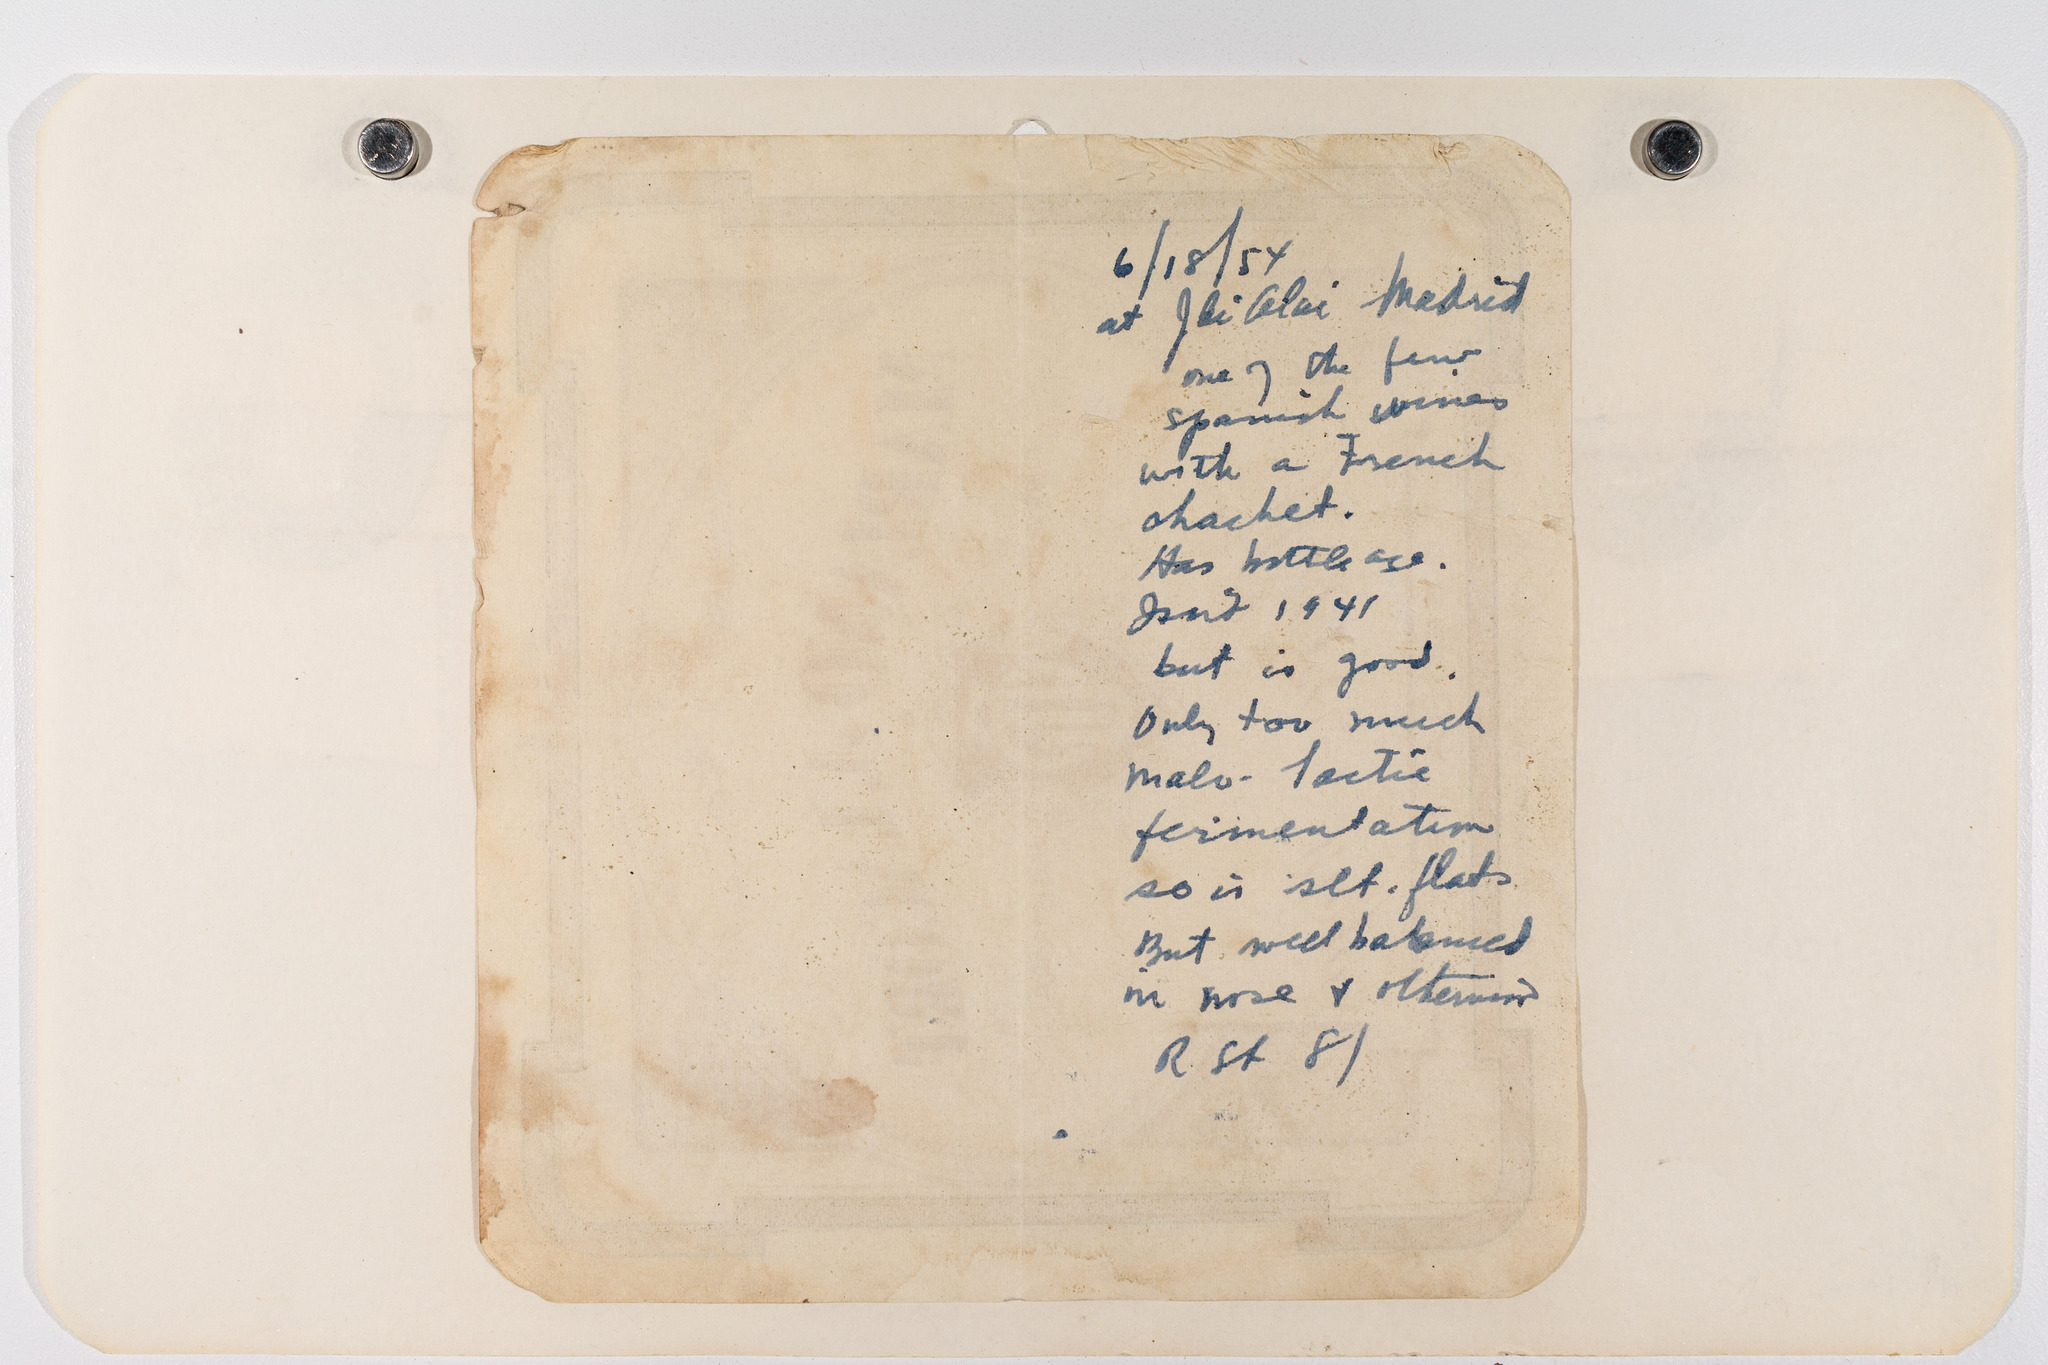 6/18/54
at Jai Alai Madrid
one of the few
spanish wines
with a French
chachet.
Has bottle age.
Isn't 1941
but is good.
Only too much
malo- lactic
fermentation
so is slt. flat.
But well balanced
in nose & otherwise
R St 8/